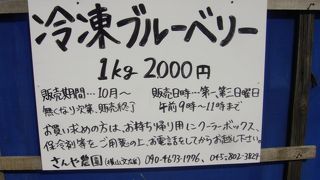 冷凍ブルーベリー
1kg 2000円
販売期間…10月〜 販売日時…第一、第三日曜日
無くなり次第、販売終了 午前9時〜11時まで
お買い求めの方は、お持ち帰り用にクーラーボックス、
保冷剤等をご用意の上、お電話をしてからお越し下さい。
さんや農園 090-4673-1776、045-802-3829